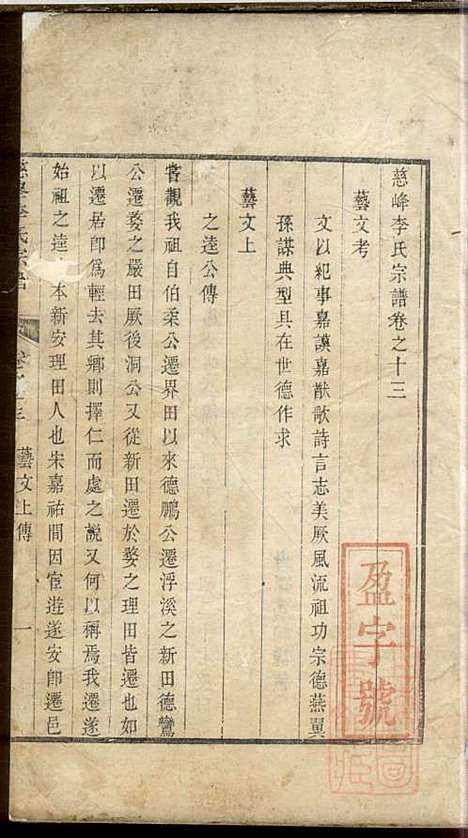 慈峰李氏宗譜卷之十三
藝文考
文以紀事嘉謨嘉猷歌詩言志美厥風流祖功宗德燕翼
孫謀典型具在世德作求
藝文上
之逵公傳
嘗觀我祖自伯柔公遷界田以來德鵬公遷浮溪之新田德鸞
公遷婺之嚴田厥後洞公又從新田遷於婺之理田皆遷也如
以遷居卽爲輕去其鄉則擇仁而處之說又何以稱焉我遷遂
始祖之逵 本新安理田人也宋嘉祐間因宦遊遂安卽遷邑
藝文上傳
一
盈字號